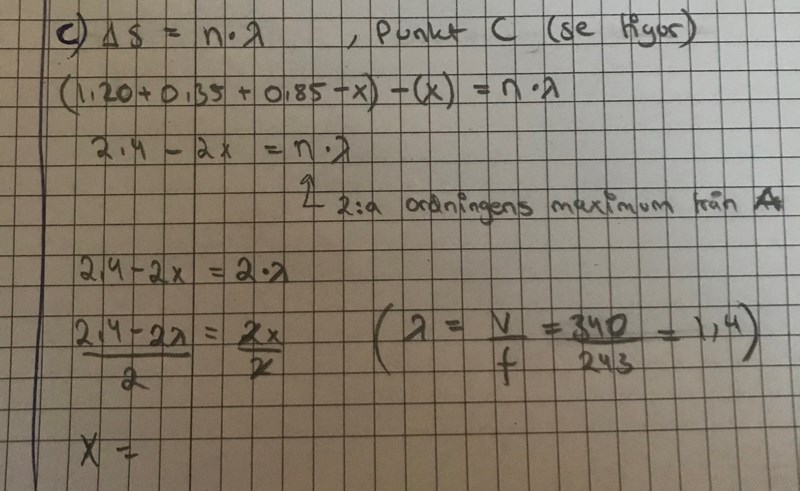 c) Δs = n·λ , Punkt C (se figur)
(1,20+0,35+0,85-x)-(x) = n·λ
2,4 - 2x = n·λ
2:a ordningens maximum från A
2,4-2x = 2·λ
(2,4-2λ)/2 = 2x/2 (λ = v/f = 340/243 = 1,4)
x =